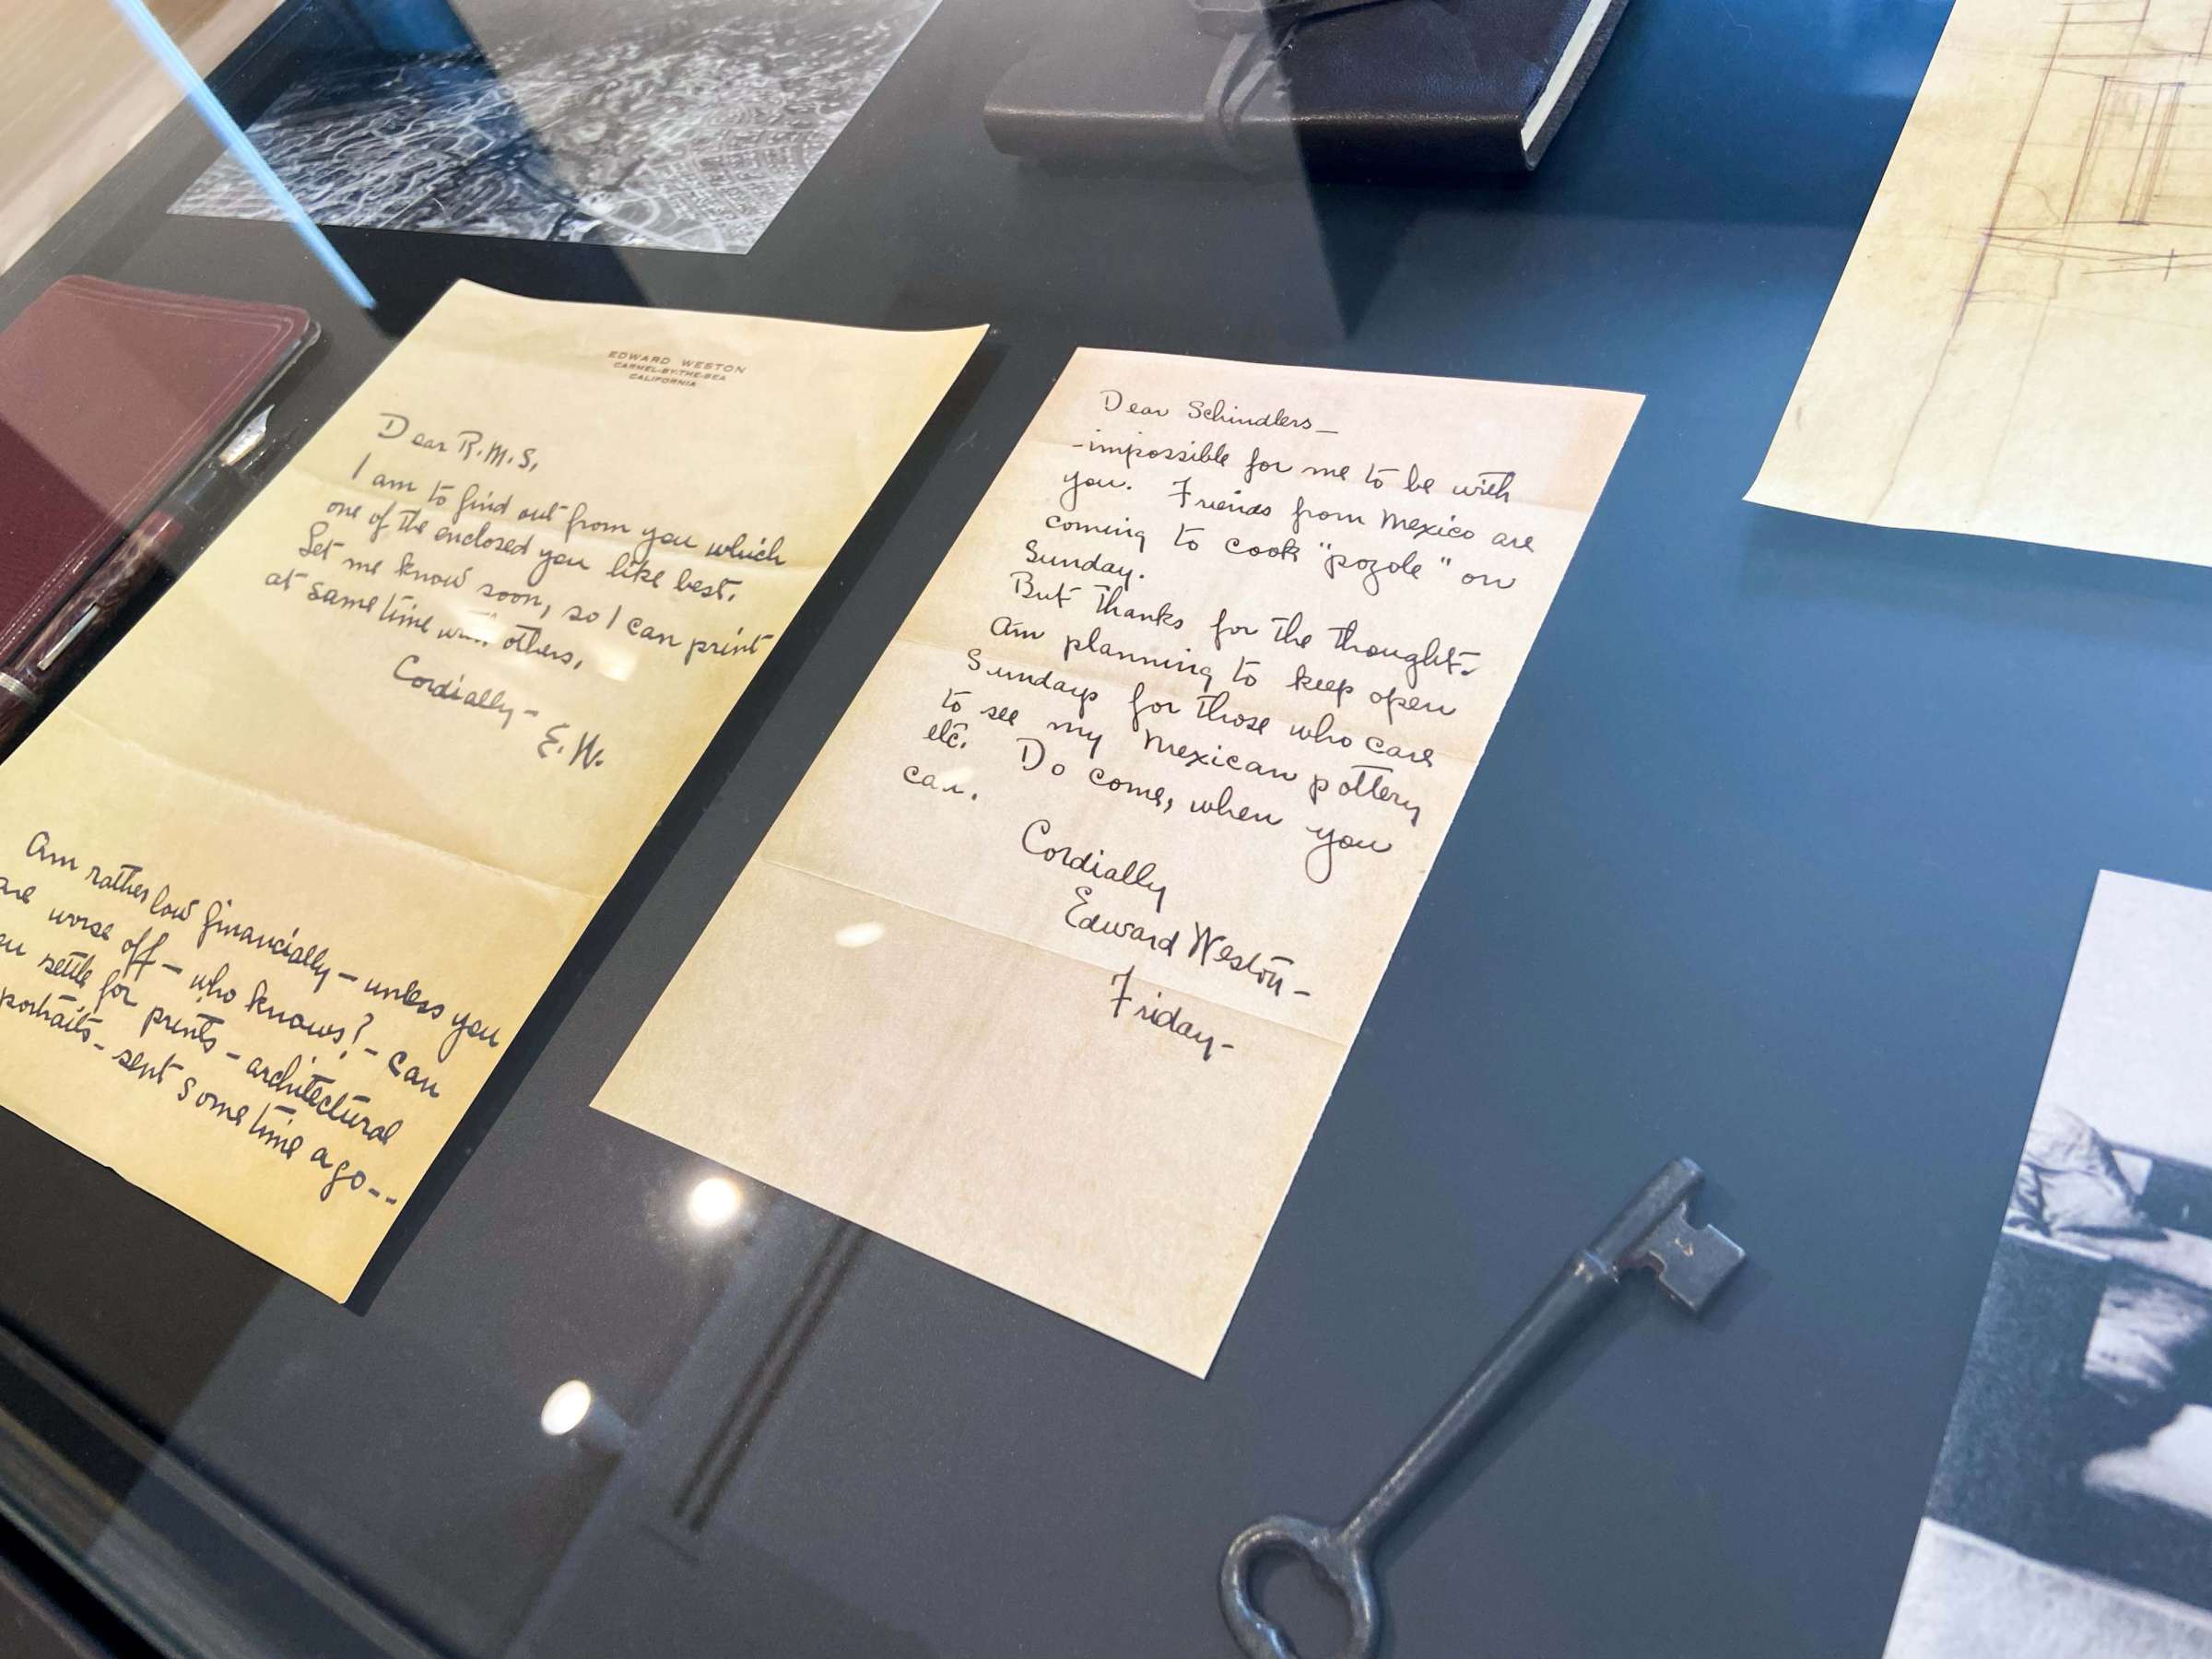 EDWARD WESTON
CARMEL-BY-THE-SEA
CALIFORNIA
Dear R.M.S.,
I am to find out from you which
one of the enclosed you like best.
Let me know soon, so I can print
at same time with others,
Cordially –
E.W.
Am rather low financially – unless you
are worse off – who knows? – can
settle for prints – architectural
portraits – sent sometime ago --
Dear Schindlers –
- impossible for me to be with
you. Friends from Mexico are
coming to cook "pozole" on
Sunday.
But thanks for the thought.
Am planning to keep open
Sundays for those who care
to see my Mexican pottery
etc. Do come, when you
can.
Cordially
Edward Weston –
Friday –